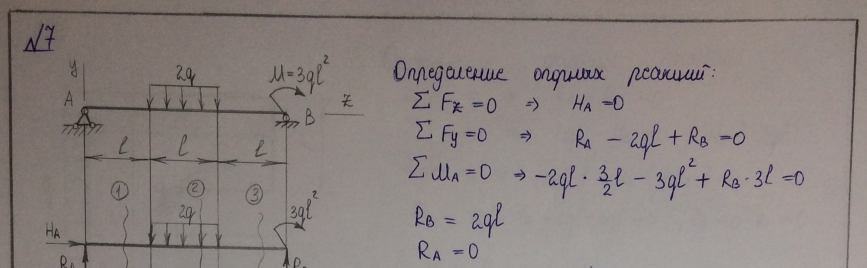 №7
y
2q
M=3ql²
A
B
z
l
l
l
1
2
3
2q
3ql²
H_A
R_A
Определение опорных реакций:
Σ F_z = 0 ⇒ H_A = 0
Σ F_y = 0 ⇒ R_A − 2ql + R_B = 0
Σ M_A = 0 ⇒ −2ql · 3/2 l − 3ql² + R_B · 3l = 0
R_B = 2ql
R_A = 0